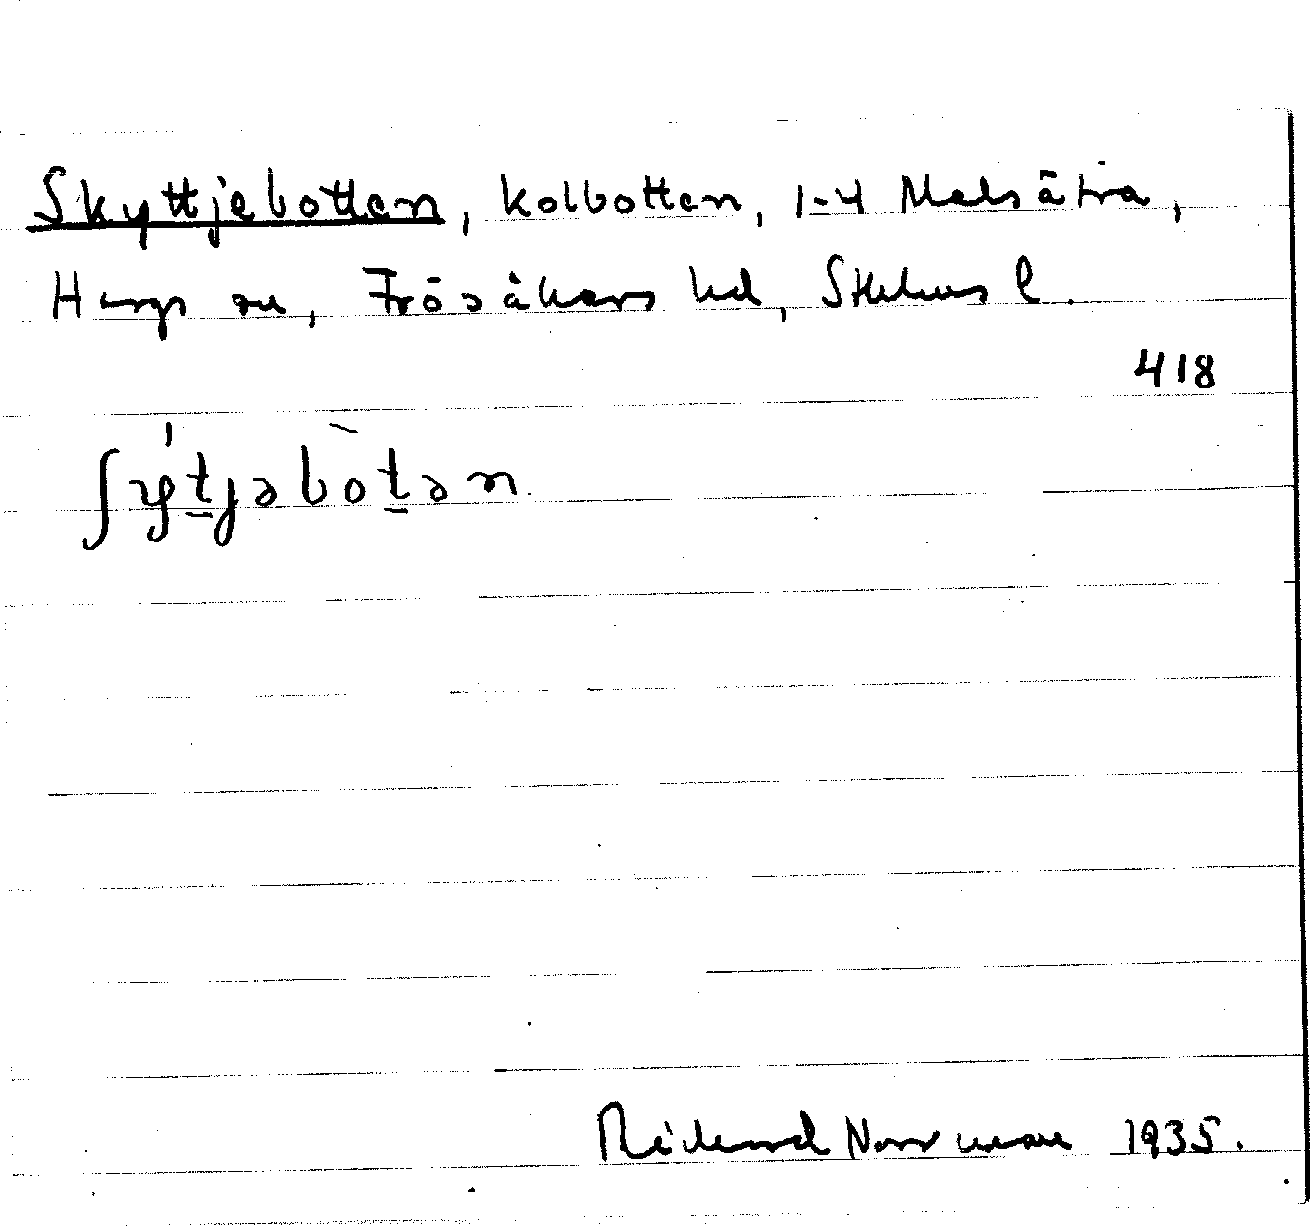 Skyttjebotten, kolbotten, 1-4 Malsätra,
Hargs sn, Frösåkers hd, Sthlms l.
418
ʃy̗t̠jəbòt̠ən
Rickard Norrman 1935.